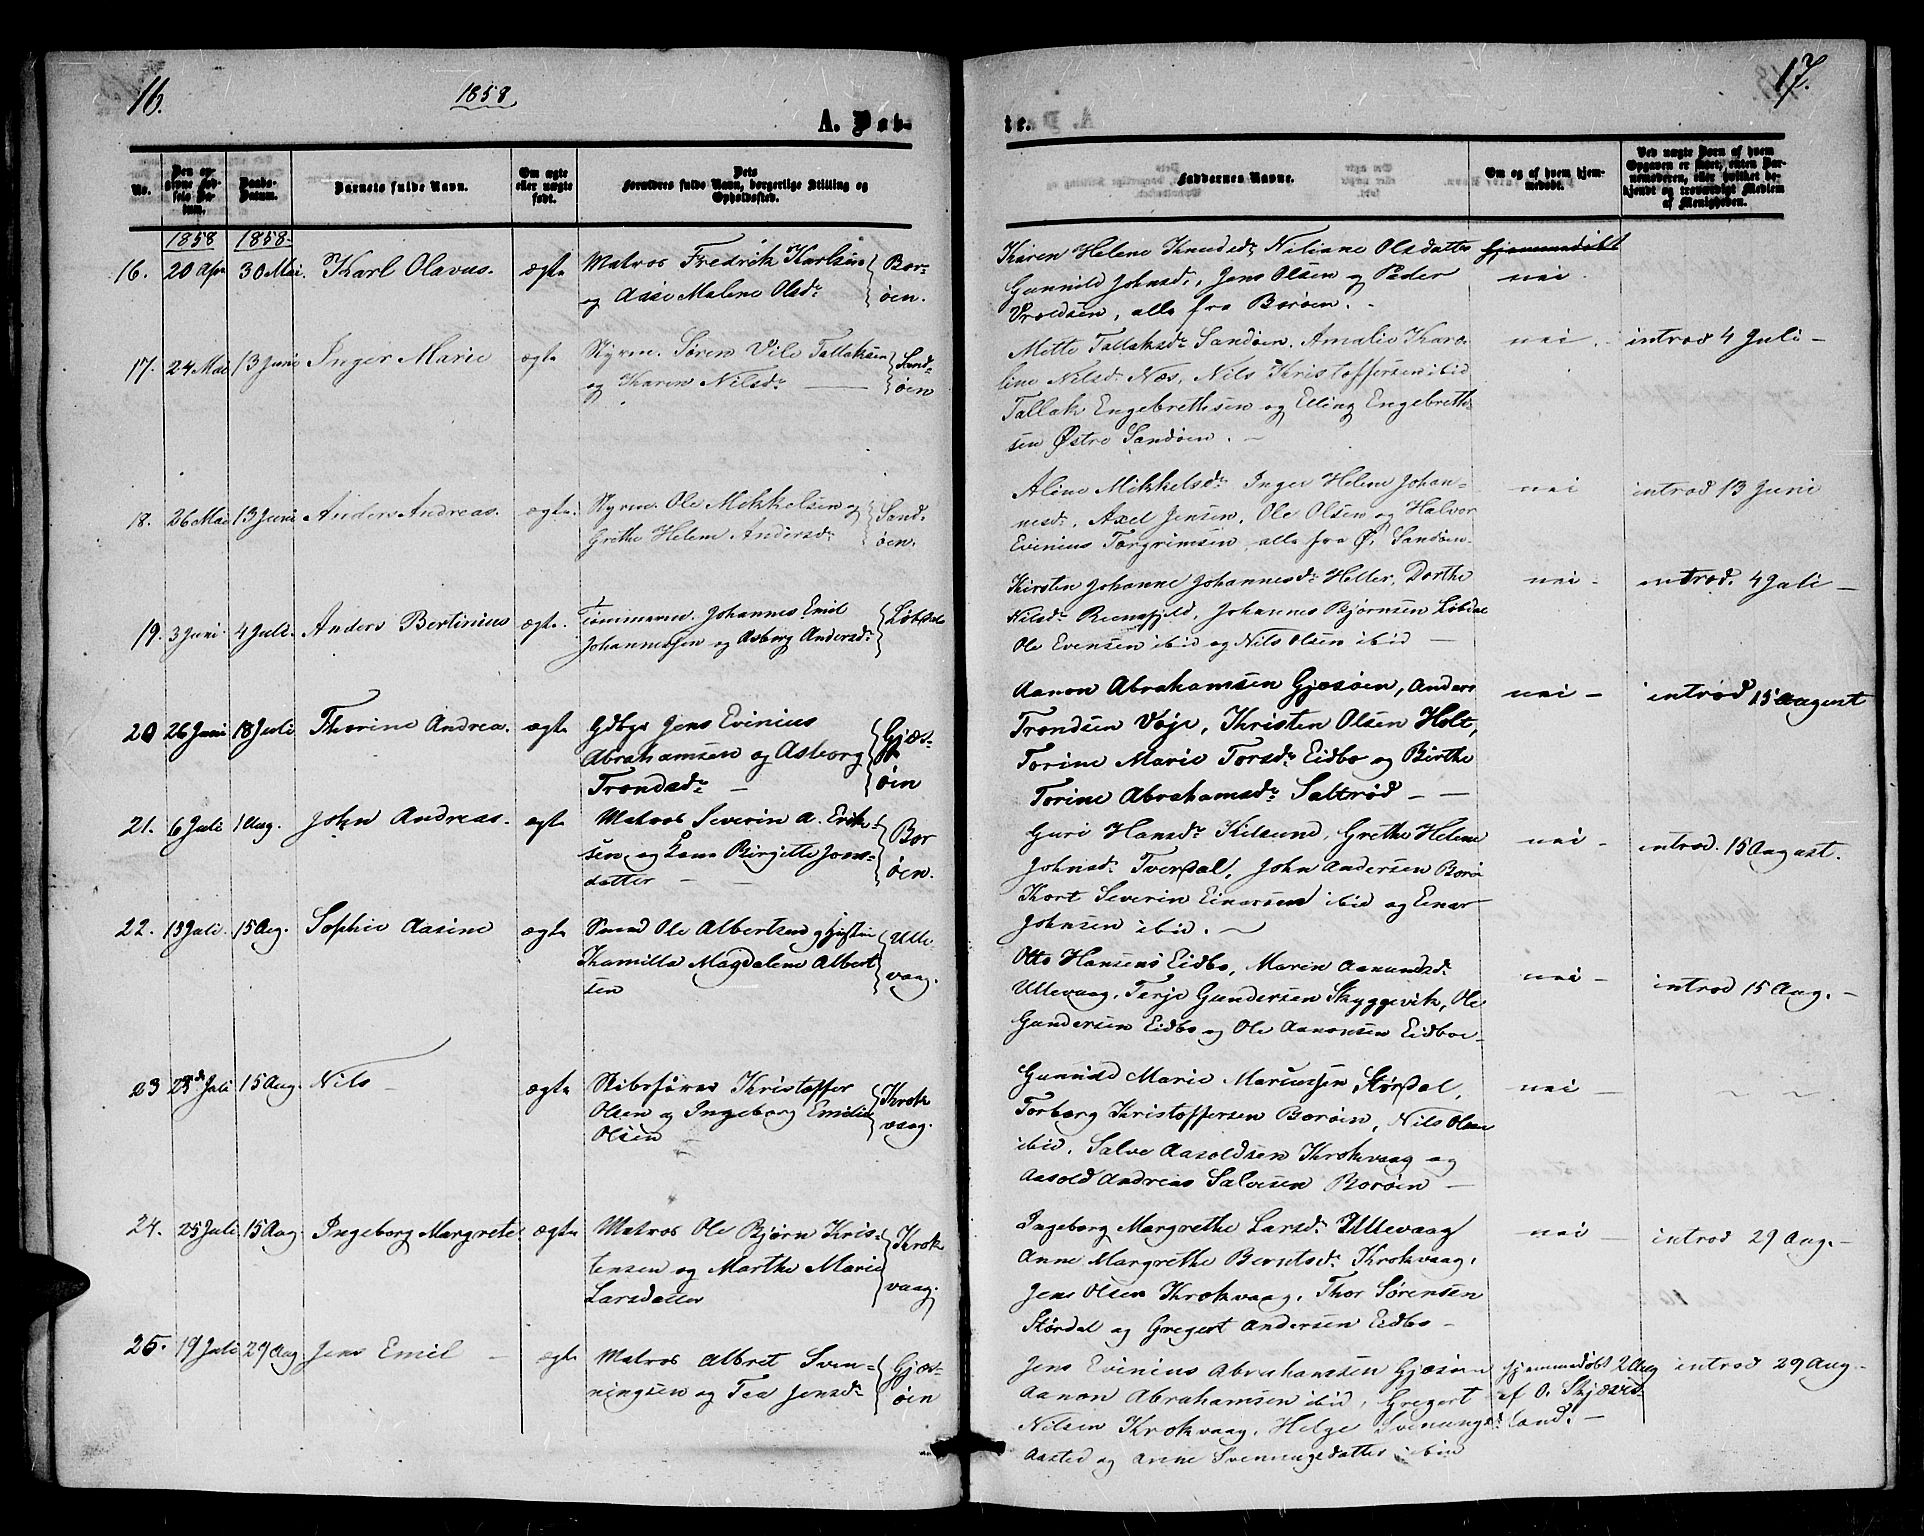 16.
1858
A. Døb-
te.
17.
No.
Den op-
givne Fød-
sels Da-
tum.
Daabs-
Datum.
Barnets fulde Navn.
Om ægte
eller uægte
født.
Dets
Forældres fulde Navn, borgerlige Stilling og
Opholdssted.
Faddernes Navne.
Om og af hvem hjem-
medøbt.
Ved uægte Børn af hvem
Opgaven er skeet, enten Bar-
nemoderen, eller hvilket be-
kjendt og troværdigt Medlem
af Menigheden.
1858 1858.
16. 20 Apr 30 Mai. Karl Olavus. ægte Matros Fredrik Karlsen
og Aase Malene Olsdr
Bor-
øen.
Karen Helene Knudsdr Niliane Olsdatter
Gunnild Johnsdr, Jens Olsen og Peder
Vroldsen, alle fra Borøen. -
hjemmedøbt
nei.
17. 24 Mai 13 Juni Inger Marie ægte Styrm. Søren Vile Tallaksen
og Karen Nilsdr
Sand-
øen
Mette Tallaksdr Sandøen, Amalie Karo-
line Nilsdr Næs, Nils Kristoffersen ibid
Tallak Engebrethsen og Elling Engebreth-
sen Østre Sandøen. -
nei. introd 4 Juli -
18. 26 Mai 13 Juni Anders Andreas. ægte. Styrm. Ole Mikkelsen og
Grethe Helene Andersdr
Sand-
øen.
Aline Mikkelsdr Inger Helene Johan-
nesdr, Axel Jensen, Ole Olsen og Halvor
Evinius Torgrimsen, alle fra Ø. Sandøen.
nei introd 13 Juni
19. 3 Juni. 4 Juli. Anders Bertinius ægte. Tømmerm. Johannes Emil
Johannessen og Asborg Andersdr
Løbdal
Kirsten Johanne Johannesdr Holter, Dorthe
Nilsdr Reensfjeld, Johannes Bjørnsen Løbdal
Ole Evensen ibid og Nils Olsen ibid -
nei - introd. 4 Juli -
20 26 Juni 18 Juli Thorine Andrea. ægte Gdbgr Jens Evinius
Abrahamsen og Asborg
Trondsdr -
Gjæs-
øen
Aanon Abrahamsen Gjæsøen, Anders
Trondsen Voje, Kristen Olsen Holt,
Torine Marie Torsdr Eidbo og Birthe
Torine Abrahamsdr Saltrød - -
nei - introd 15 August
21. 6 Juli 1 Aug. John Andreas. ægte Matros Severin A. Erik-
sen og Lene Birgitte Jons-
datter -
Bor
øen.
Guri Hansdr Kilsund, Grethe Helene
Johnsdr Tverdal, John Andersen Borø
Kort Severin Einersen ibid og Einar
Johnsen ibid. -
nei - introd. 15 August.
22. 13 Juli. 15 Aug. Sophie Aasine ægte Smed Ole Albertsen og Justine
Kamilla Magdalene Albert
sen
Ulle-
vaag.
Otto Hansens Eidbo, Maren Aanundsdr
Ullevaag, Terje Gundersen Skyggevik, Ole
Gundersen Eidbo og Ole Aanonsen Eidboe-
nei - introd 15 Aug. -
23 Juli 15 Aug. Nils - ægte Skibsfører Kristoffer
Olsen og Ingeborg Emilie
Olsen -
Krok
vaag.
Gunnild Marie Marcussen, Størdal,
Torborg Kristoffersen Borøen, Nils Olsen
ibid, Salve Aasoldsen Krokvaag og
Aasold Andreas Salvesen Borøen -
nei -
24. 25 Juli 15 Aug. Ingeborg Margrete ægte Matros Ole Bjørn Kris-
tensen og Marthe Marie
Larsdatter
Krok
vaag.
Ingeborg Margrethe Larsdr Ullevaag
Anne Margrethe Berntsdr Krokvaag,
Jens Olsen Krokvaag, Thor Sørensen
Størdal og Gregert Andersen Eidbo -
nei - introd 29 Aug. -
25. 19 Juli 29 Aug Jens Emil - ægte Matros Albret Sven-
ningsen og Tea Jensdr
Gjæs-
øen
Jens Evinius Abrahamsen Gjæsøen
Aanon Abrahamsen ibid, Gregert
Nilsen Krokvaag, Helge Svenningsdr
Aasted og Anne Svenningsdatter ibid
hjemmedøbt 2 Aug
af O. Skjæve-
land. -
introd 29 Aug -